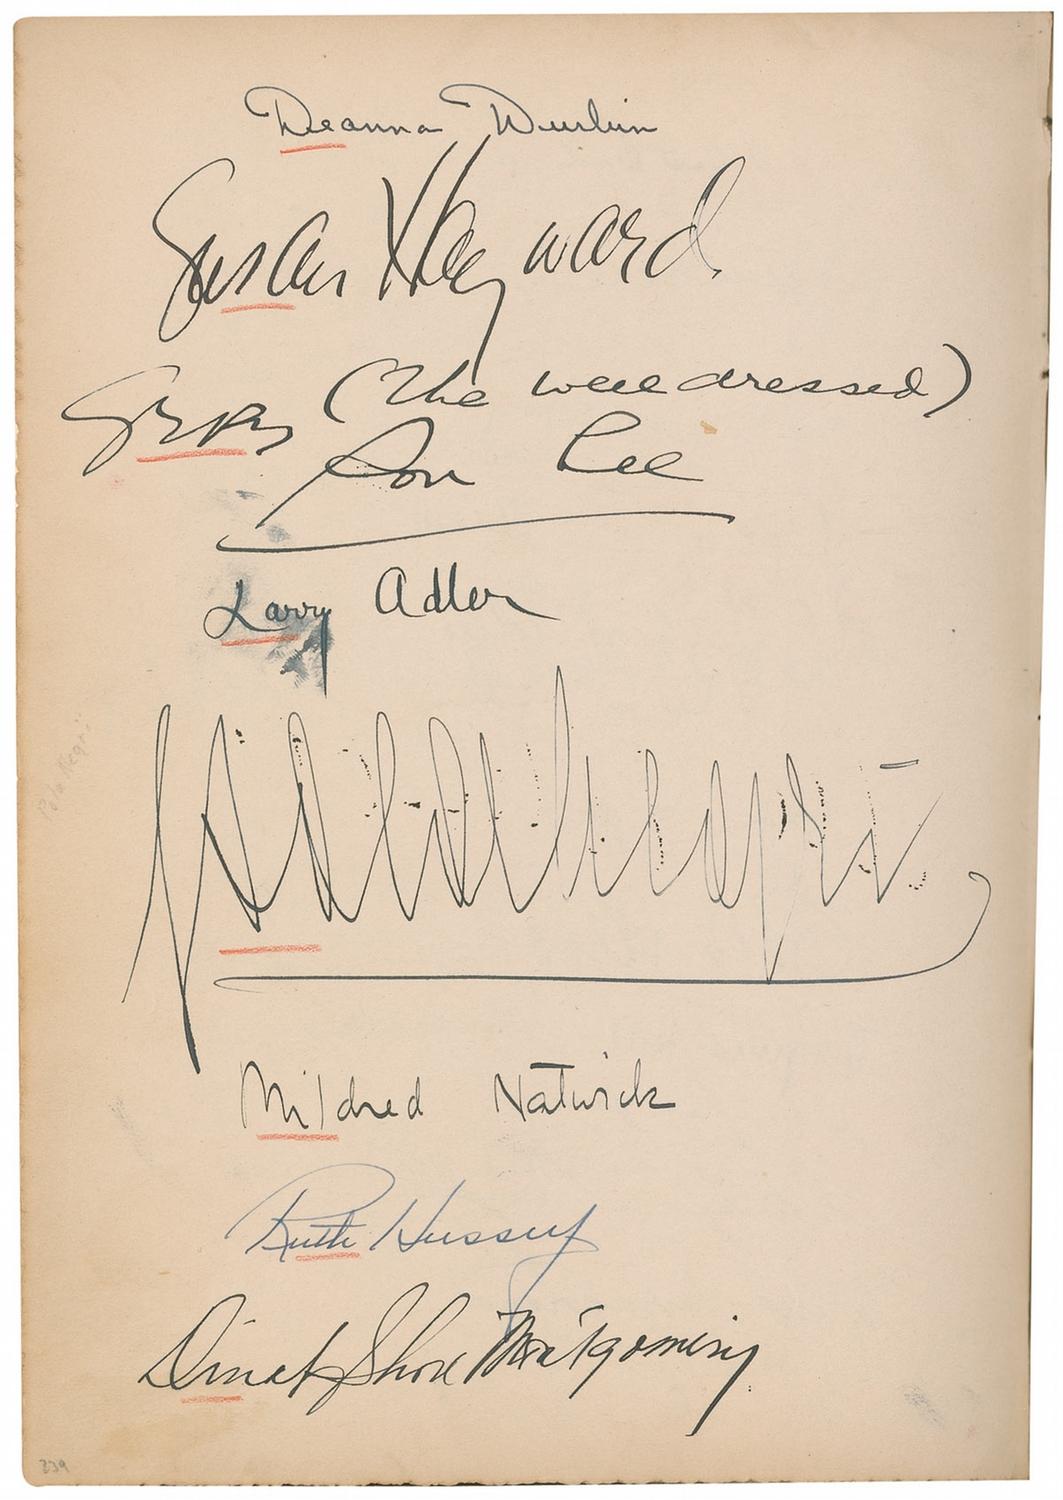 Deanna Durbin
Susan Hayward
Gypsy (The well dressed)
Lee
Larry Adler
Pola Negri
Pola Negri
Mildred Natwick
Ruth Hussey
Dinah Shore Montgomery
239